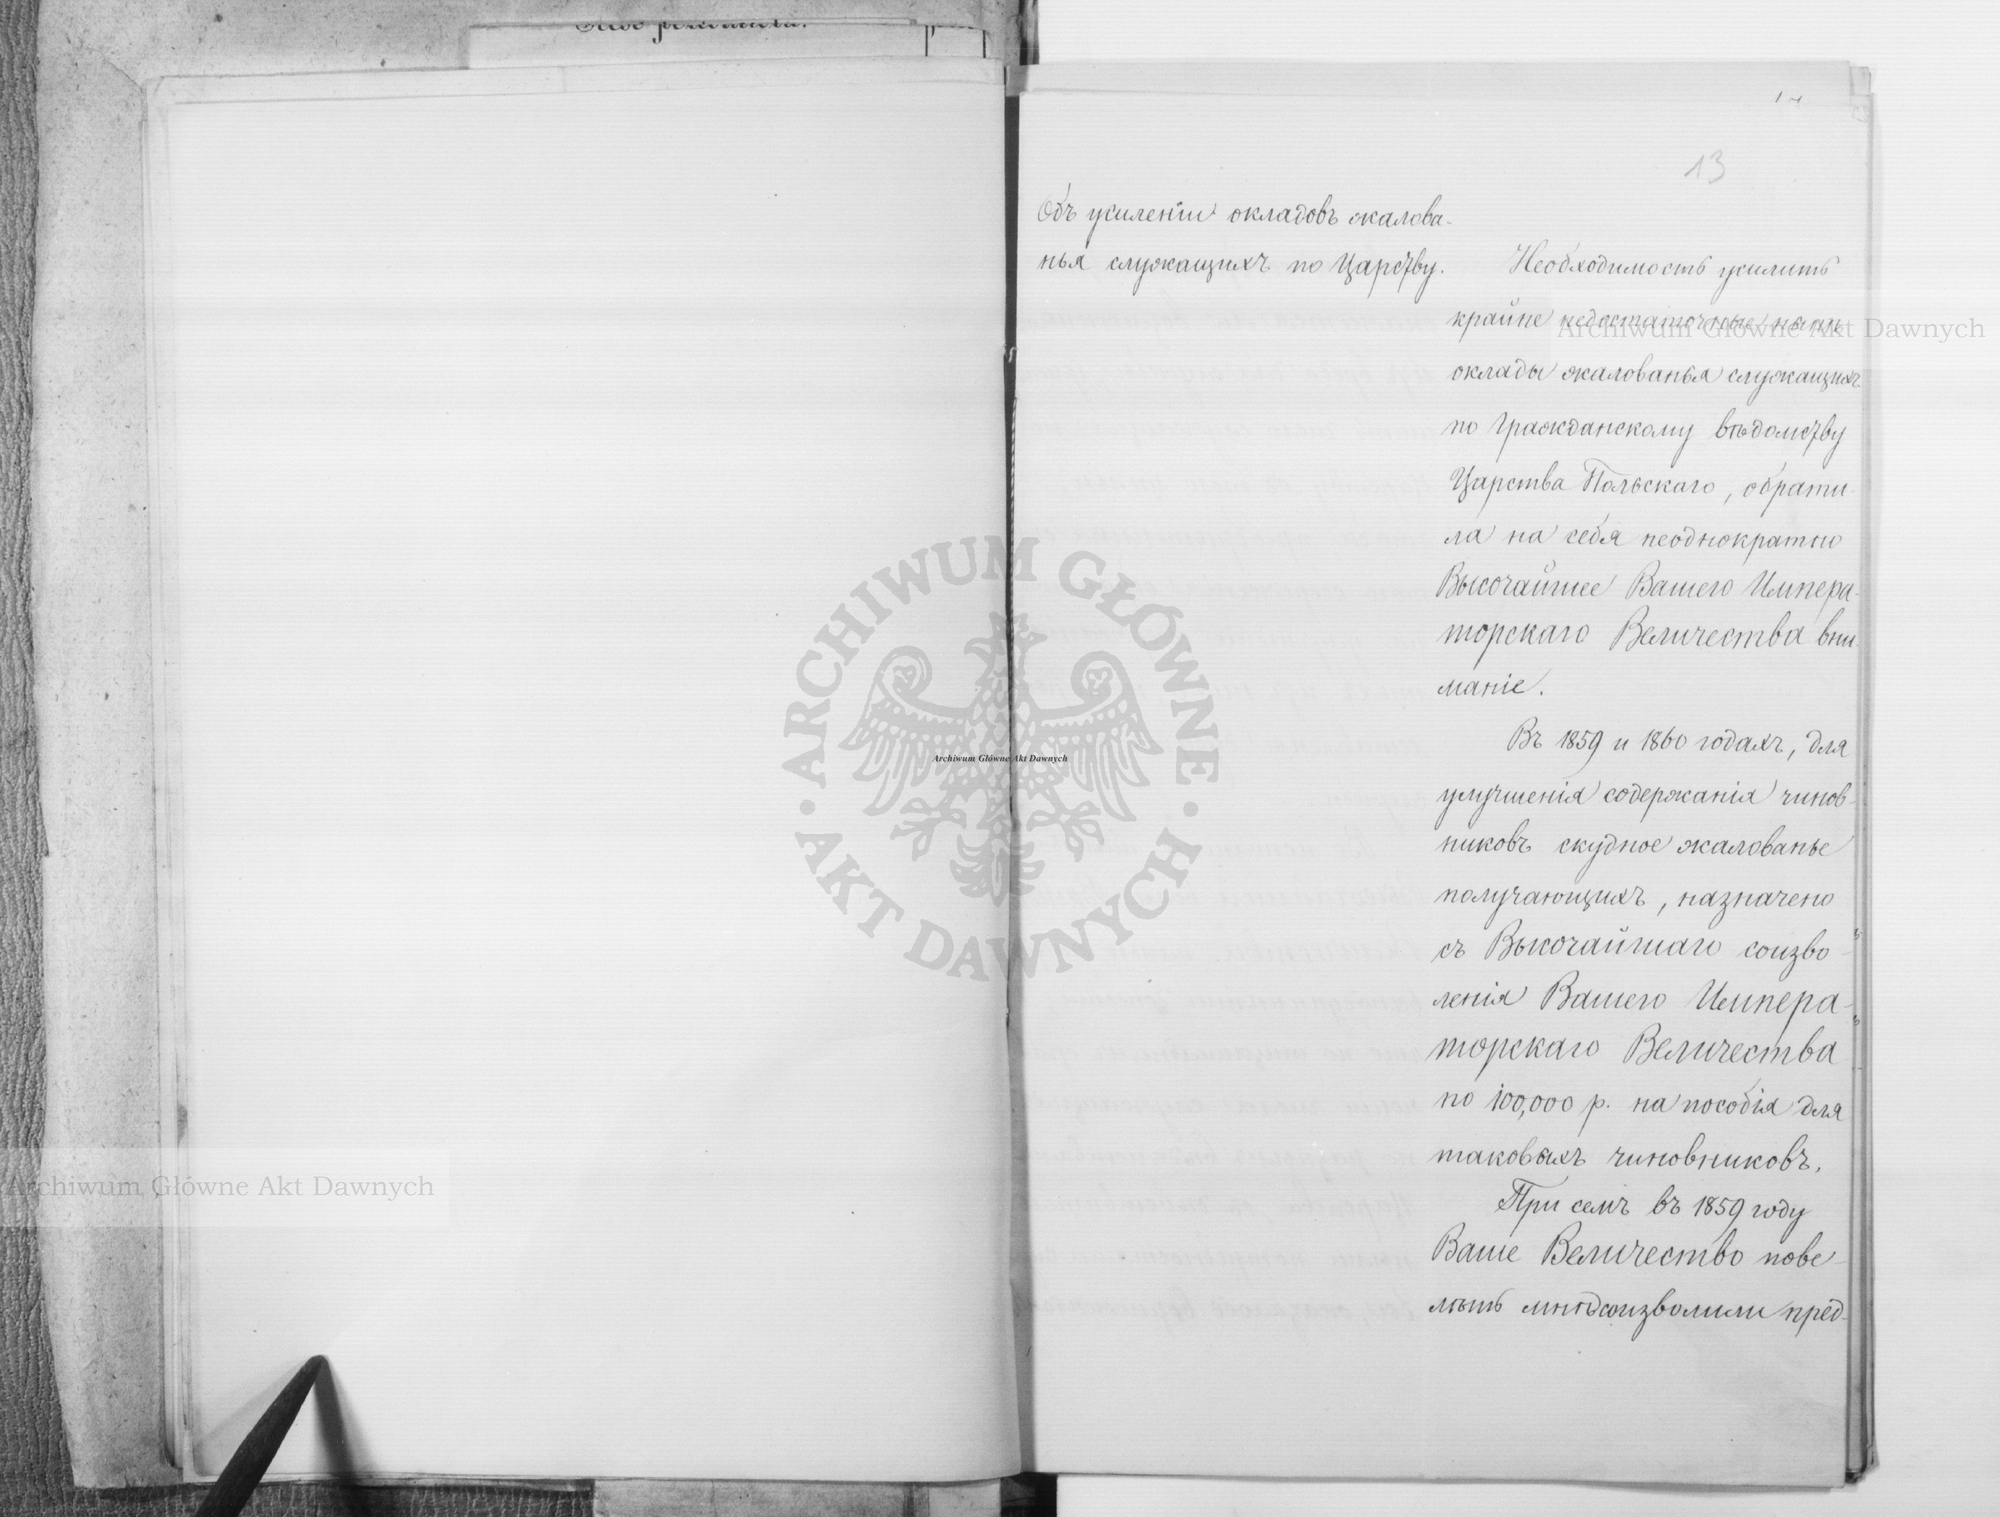 13
Объ усиленіи окладовъ жалова-
нья служащихъ по Царству.
Необходимость усилить
крайне недостаточные нынѣ
оклады жалованья служащихъ
по Гражданскому вѣдомству
Царства Польскаго, обрати-
ла на себя неоднократно
Высочайшее Вашего Импера-
торскаго Величества вни-
маніе.
Въ 1859 и 1860 годахъ, для
улучшенія содержанія чинов-
никовъ скудное жалованье
получающихъ, назначено
съ Высочайшаго соизво-
ленія Вашего Импера-
торскаго Величества
по 100,000 р. на пособія для
таковыхъ чиновниковъ.
При семъ въ 1859 году
Ваше Величество пове-
лѣть мнѣ соизволили пред-
Archiwum Główne Akt Dawnych
ARCHIWUM GŁÓWNE · AKT DAWNYCH ·
Archiwum Główne Akt Dawnych
Archiwum Główne Akt Dawnych